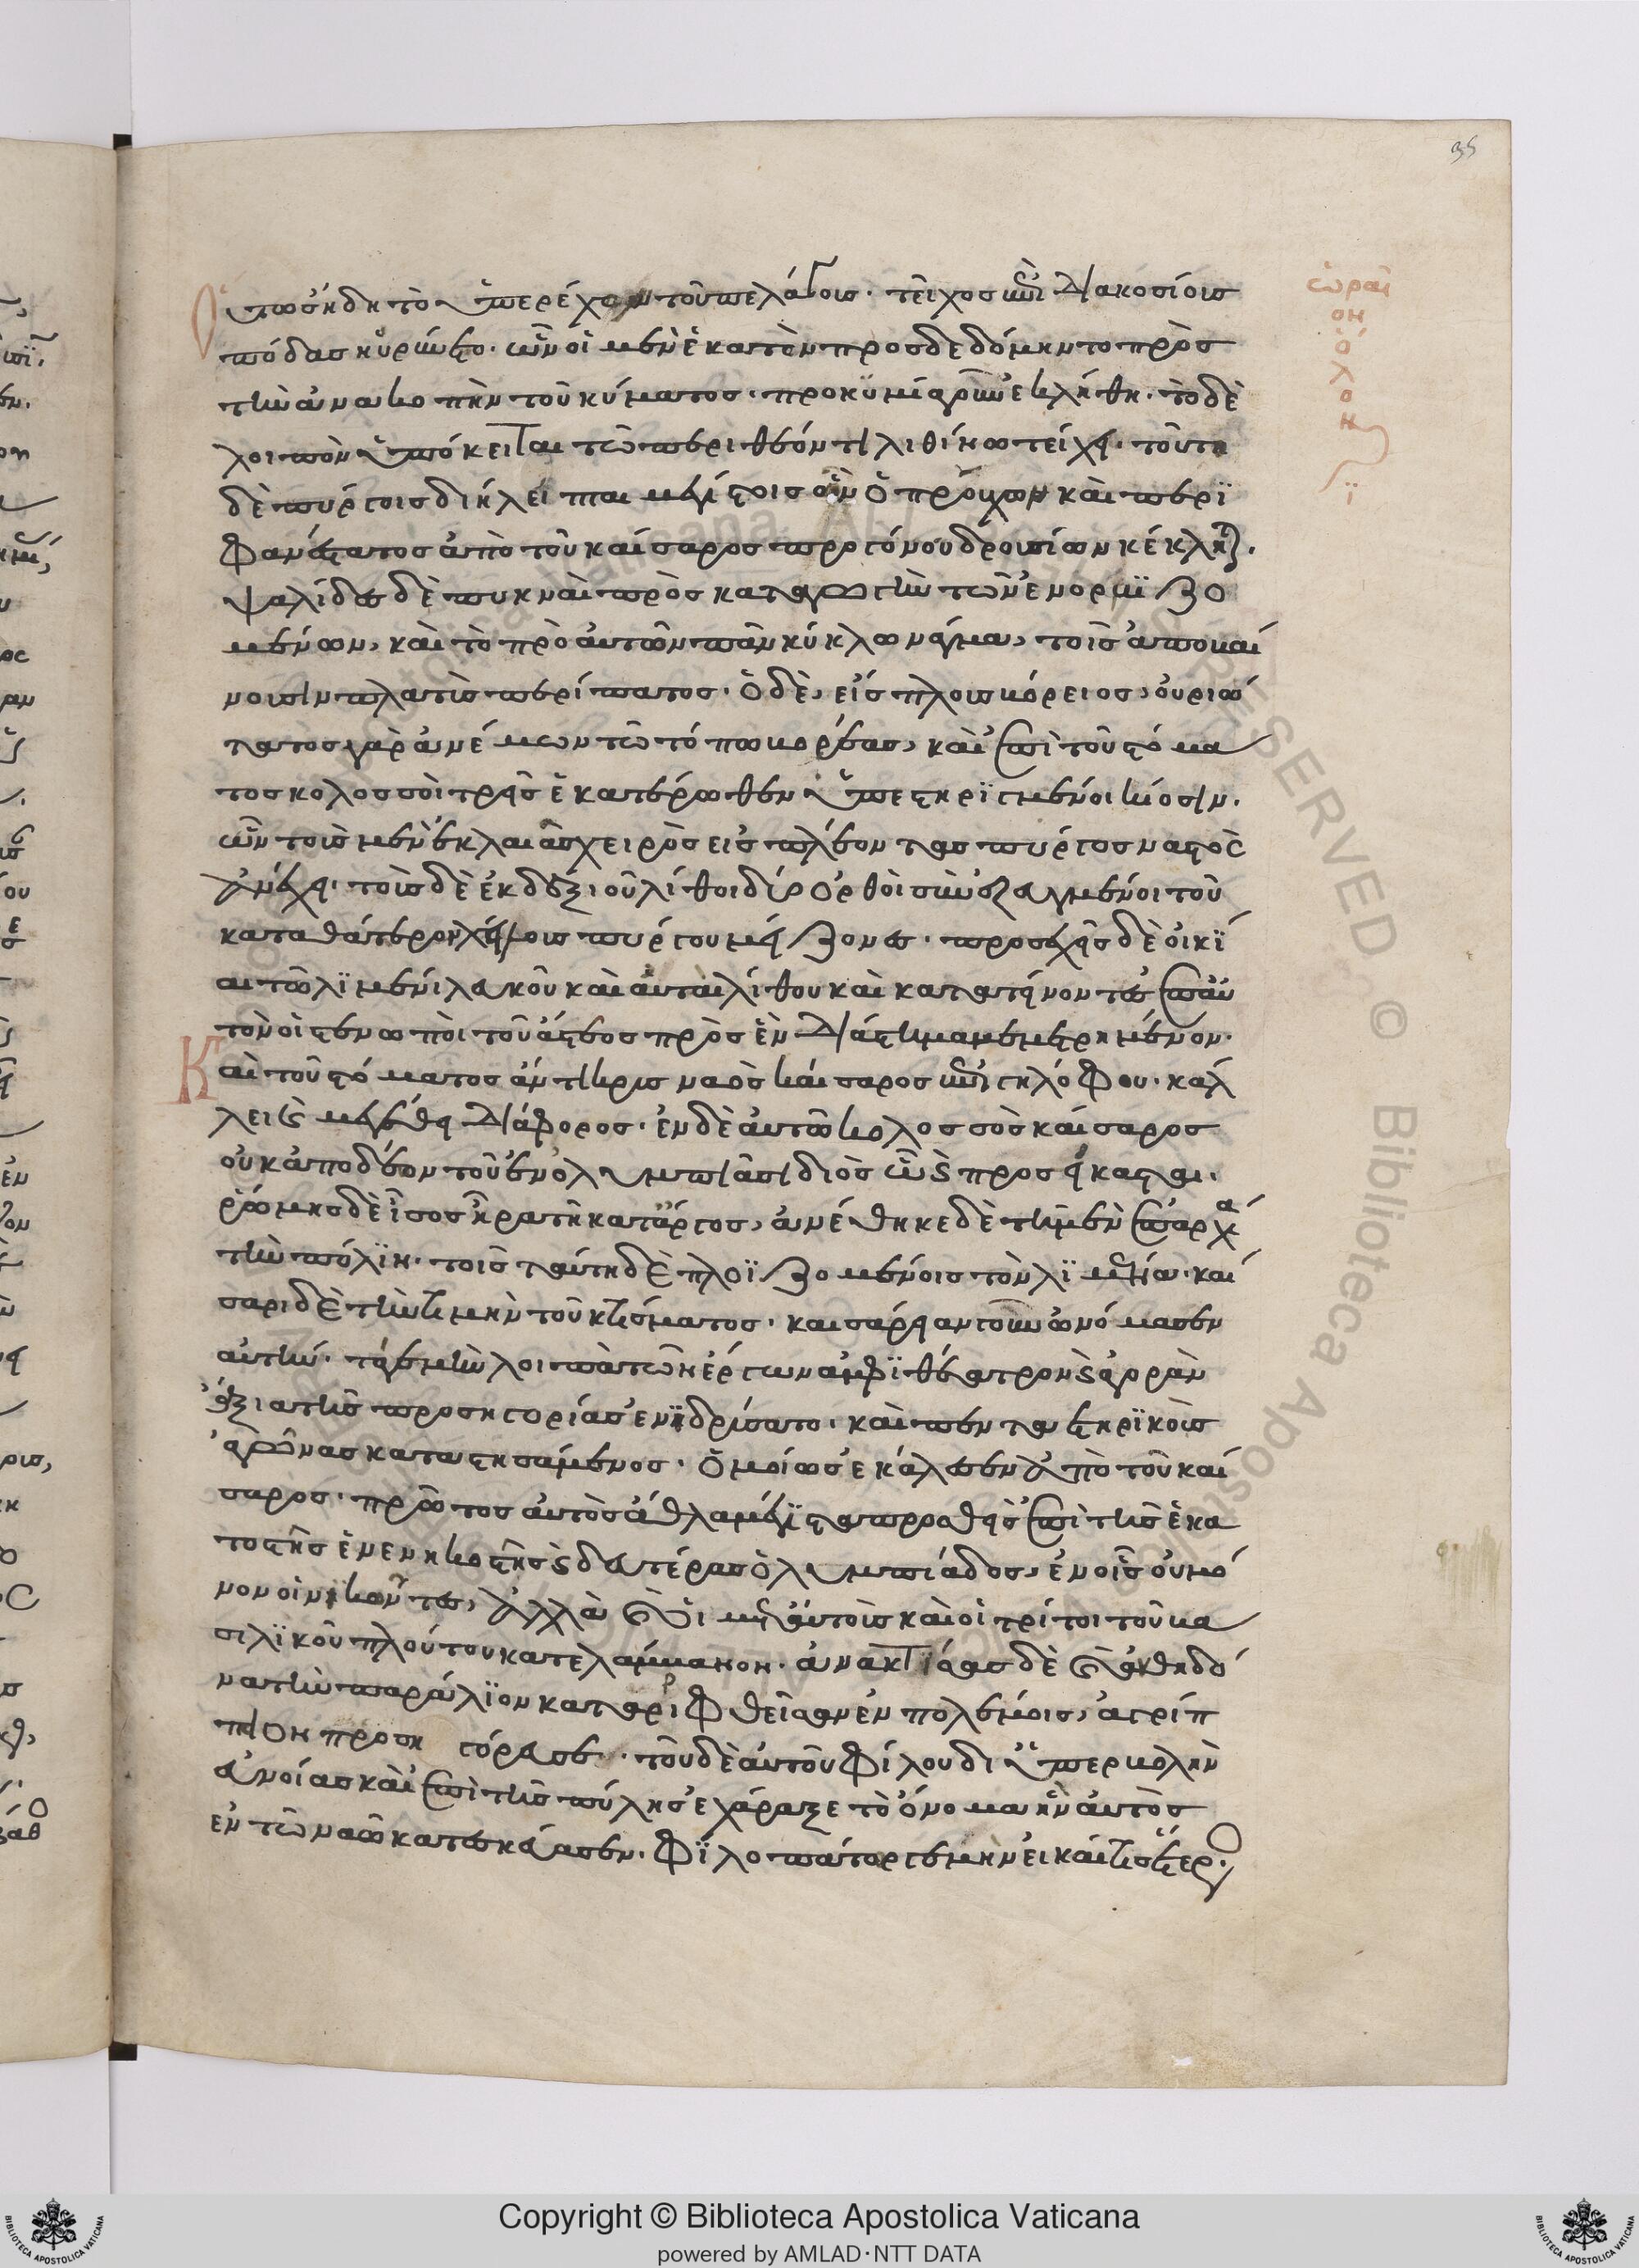 οὕτως ἤδη τὸ ὑπερέχον τοῦ πελάγους· τεῖχος ἐπὶ διακοσίους
πόδας ηὐρύνετο· ὧν οἱ μὲν ἑκατὸν προσδεδόμηντο πρὸς
τὴν ἀνακοπὴν τοῦ κύματος· προκυμία γοῦν ἐκλήθη· τὸ δὲ
λοιπὸν ὑπόκειται τῶ περιθέοντι λιθίνω τείχει· τοῦτο
δὲ πύργοις διήλειπται μεγίστοις ὧν ὁ προύχων καὶ περὶ
φανέστατος ἀπὸ τοῦ καίσαρος προγόνου δρουσίων κέκληται.
ψαλίδες δὲ πυκναὶ πρὸς καταγωγὴν τῶν ἐνορμιζο
μένων, καὶ τὸ πρὸ αὐτῶν πᾶν κύκλω νάγμα, τοῖς ἀποβαί
νουσιν πλατὺς περίπατος· ὁ δὲ, εἴσπλους βόρειος,
τατος γὰρ ἀνέμων τῶ τόπω βορέας, καὶ ἐπὶ τοῦ στόμα
τος κολοσσοὶ τρεῖς ἑκατέρωθεν ὑπεστηριγμένοι κίοσιν.
ὧν τοὺς μὲν ἐκ λαιᾶς χειρὸς εἰσπλεόντας πύργος ναστὸς
ἀνέχει· τοὺς δὲ ἐκ δεξιοῦ λίθοι δύο ὀρθοὶ συνεζευγμένοι τοῦ
κατα θάτερον χεῖλους πύργου μείζονες· προσεχεῖς δὲ οἰκί
αι τῶ λιμένι λευκοῦ καὶ αὐταὶ λίθου καὶ κατατείνοντες ἐπ' αὐ
τὸν οἱ στενωποὶ τοῦ ἄστεος πρὸς ἓν διάστημα μεμετρημένον·
Καὶ τοῦ στόματος ἀντικρυς ναὸς καίσαρος ἐπὶ γηλόφου· κάλ
λει καὶ μεγέθει διάφορος· ἐν δὲ αὐτῶ κολοσσὸς καίσαρος
οὐκ ἀποδέων τοῦ ἐν ὀλυμπίασι διὸς ὧ καὶ προσείκασται.
ῥώμης δὲ ἴσος ἥρα τῆ κατ' ἄργος, ἀνέθηκε δὲ τῆ μὲν ἐπαρχία
τὴν πόλιν· τοῖς ταύτη δὲ πλοϊζομένοις τὸν λιμένα· καί
σαρι δὲ τὴν τιμὴν τοῦ κτίσματος· καισάρειαν γοῦν ὠνόμασεν
αὐτήν· τά γε μὴν λοιπὰ τῶν ἔργων ἀμφιθέατρον καὶ ἀγορὰν
ἄξια τῆς προσηγορίας ἐνιδρύσατο· καὶ πενταετηρικοὺς
ἀγῶνας καταστησάμενος· ὁμοίως ἐκάλεσεν ἀπὸ τοῦ καί
σαρος· πρῶτος αὐτὸς ἆθλα μέγιστα προθεὶς ἐπὶ τῆς ἑκα
τοστῆς ἐνενηκοστῆς καὶ δευτέρας ὀλυμπιάδος, ἐν οἷς οὐ μό
νον οἱ νικῶντες, ἀλλὰ καὶ οἱ μετ' αὐτοὺς καὶ οἱ τρίτοι τοῦ βα
σιλικοῦ πλούτου κατελάμβανον· ἀνακτίσας δὲ καὶ ἀνθηδό
να τὴν παράλιον καταριφθεῖσαν ἐν πολέμοις, ἀγρίπ
πιον προση γόρευσε· τοῦ δὲ αὐτοῦ φίλου δι' ὑπερβολὴν
εὐνοίας καὶ ἐπὶ τῆς πύλης ἐχάραξε τὸ ὄνομα ἣν αὐτὸς
ἐν τῶ ναῶ κατεσκεύασεν. φιλοπάτωρ γε μὴν εἰ καί τις ἕτερος·
ὡραῖ
ον
ὅλον